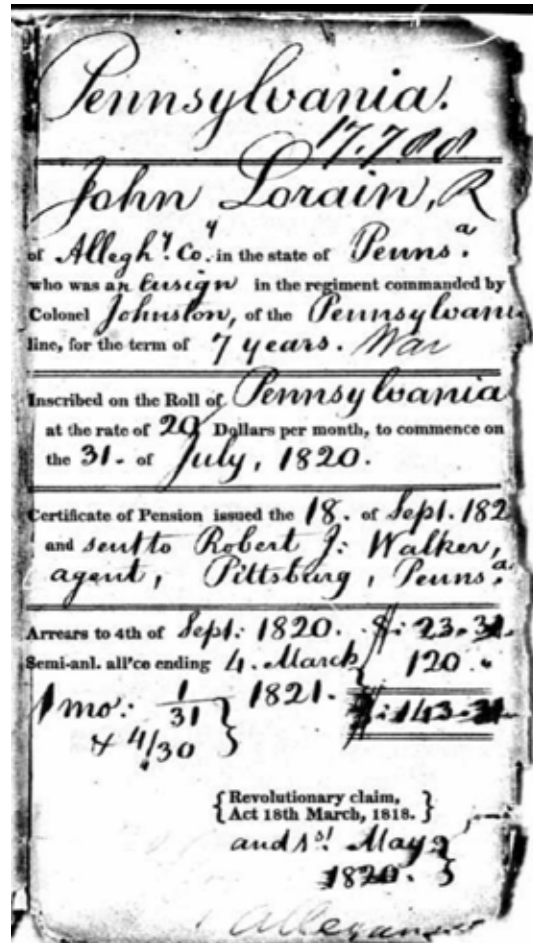 Pennsylvania.
17.788
John Lorain, R
of Allegh.y Co.y in the state of Penns.a
who was an Ensign in the regiment commanded by
Colonel Johnston, of the Pennsylvani
line, for the term of 7 years. War
Inscribed on the Roll of Pennsylvania
at the rate of 20 Dollars per month, to commence on
the 31. of July, 1820.
Certificate of Pension issued the 18. of Sept. 182
and sent to Robert J: Walker,
agent, Pittsburg, Penns.a
Arrears to 4th of Sept: 1820. $: 23.31.
Semi-anl. all'ce ending 4. March 120.
1 mo: 1/31 } 1821. $: 143.31
& 4/30 }
{ Revolutionary claim,
Act 18th March, 1818. }
and 1st May
1820. }